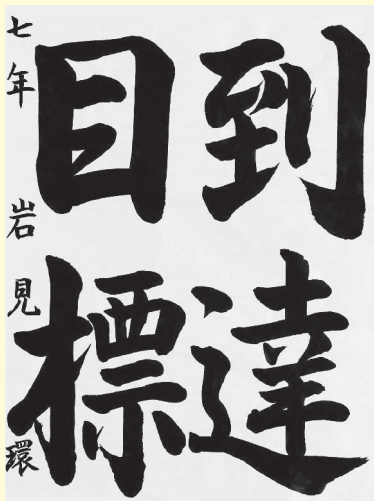 到達
目標
七年 岩見 環